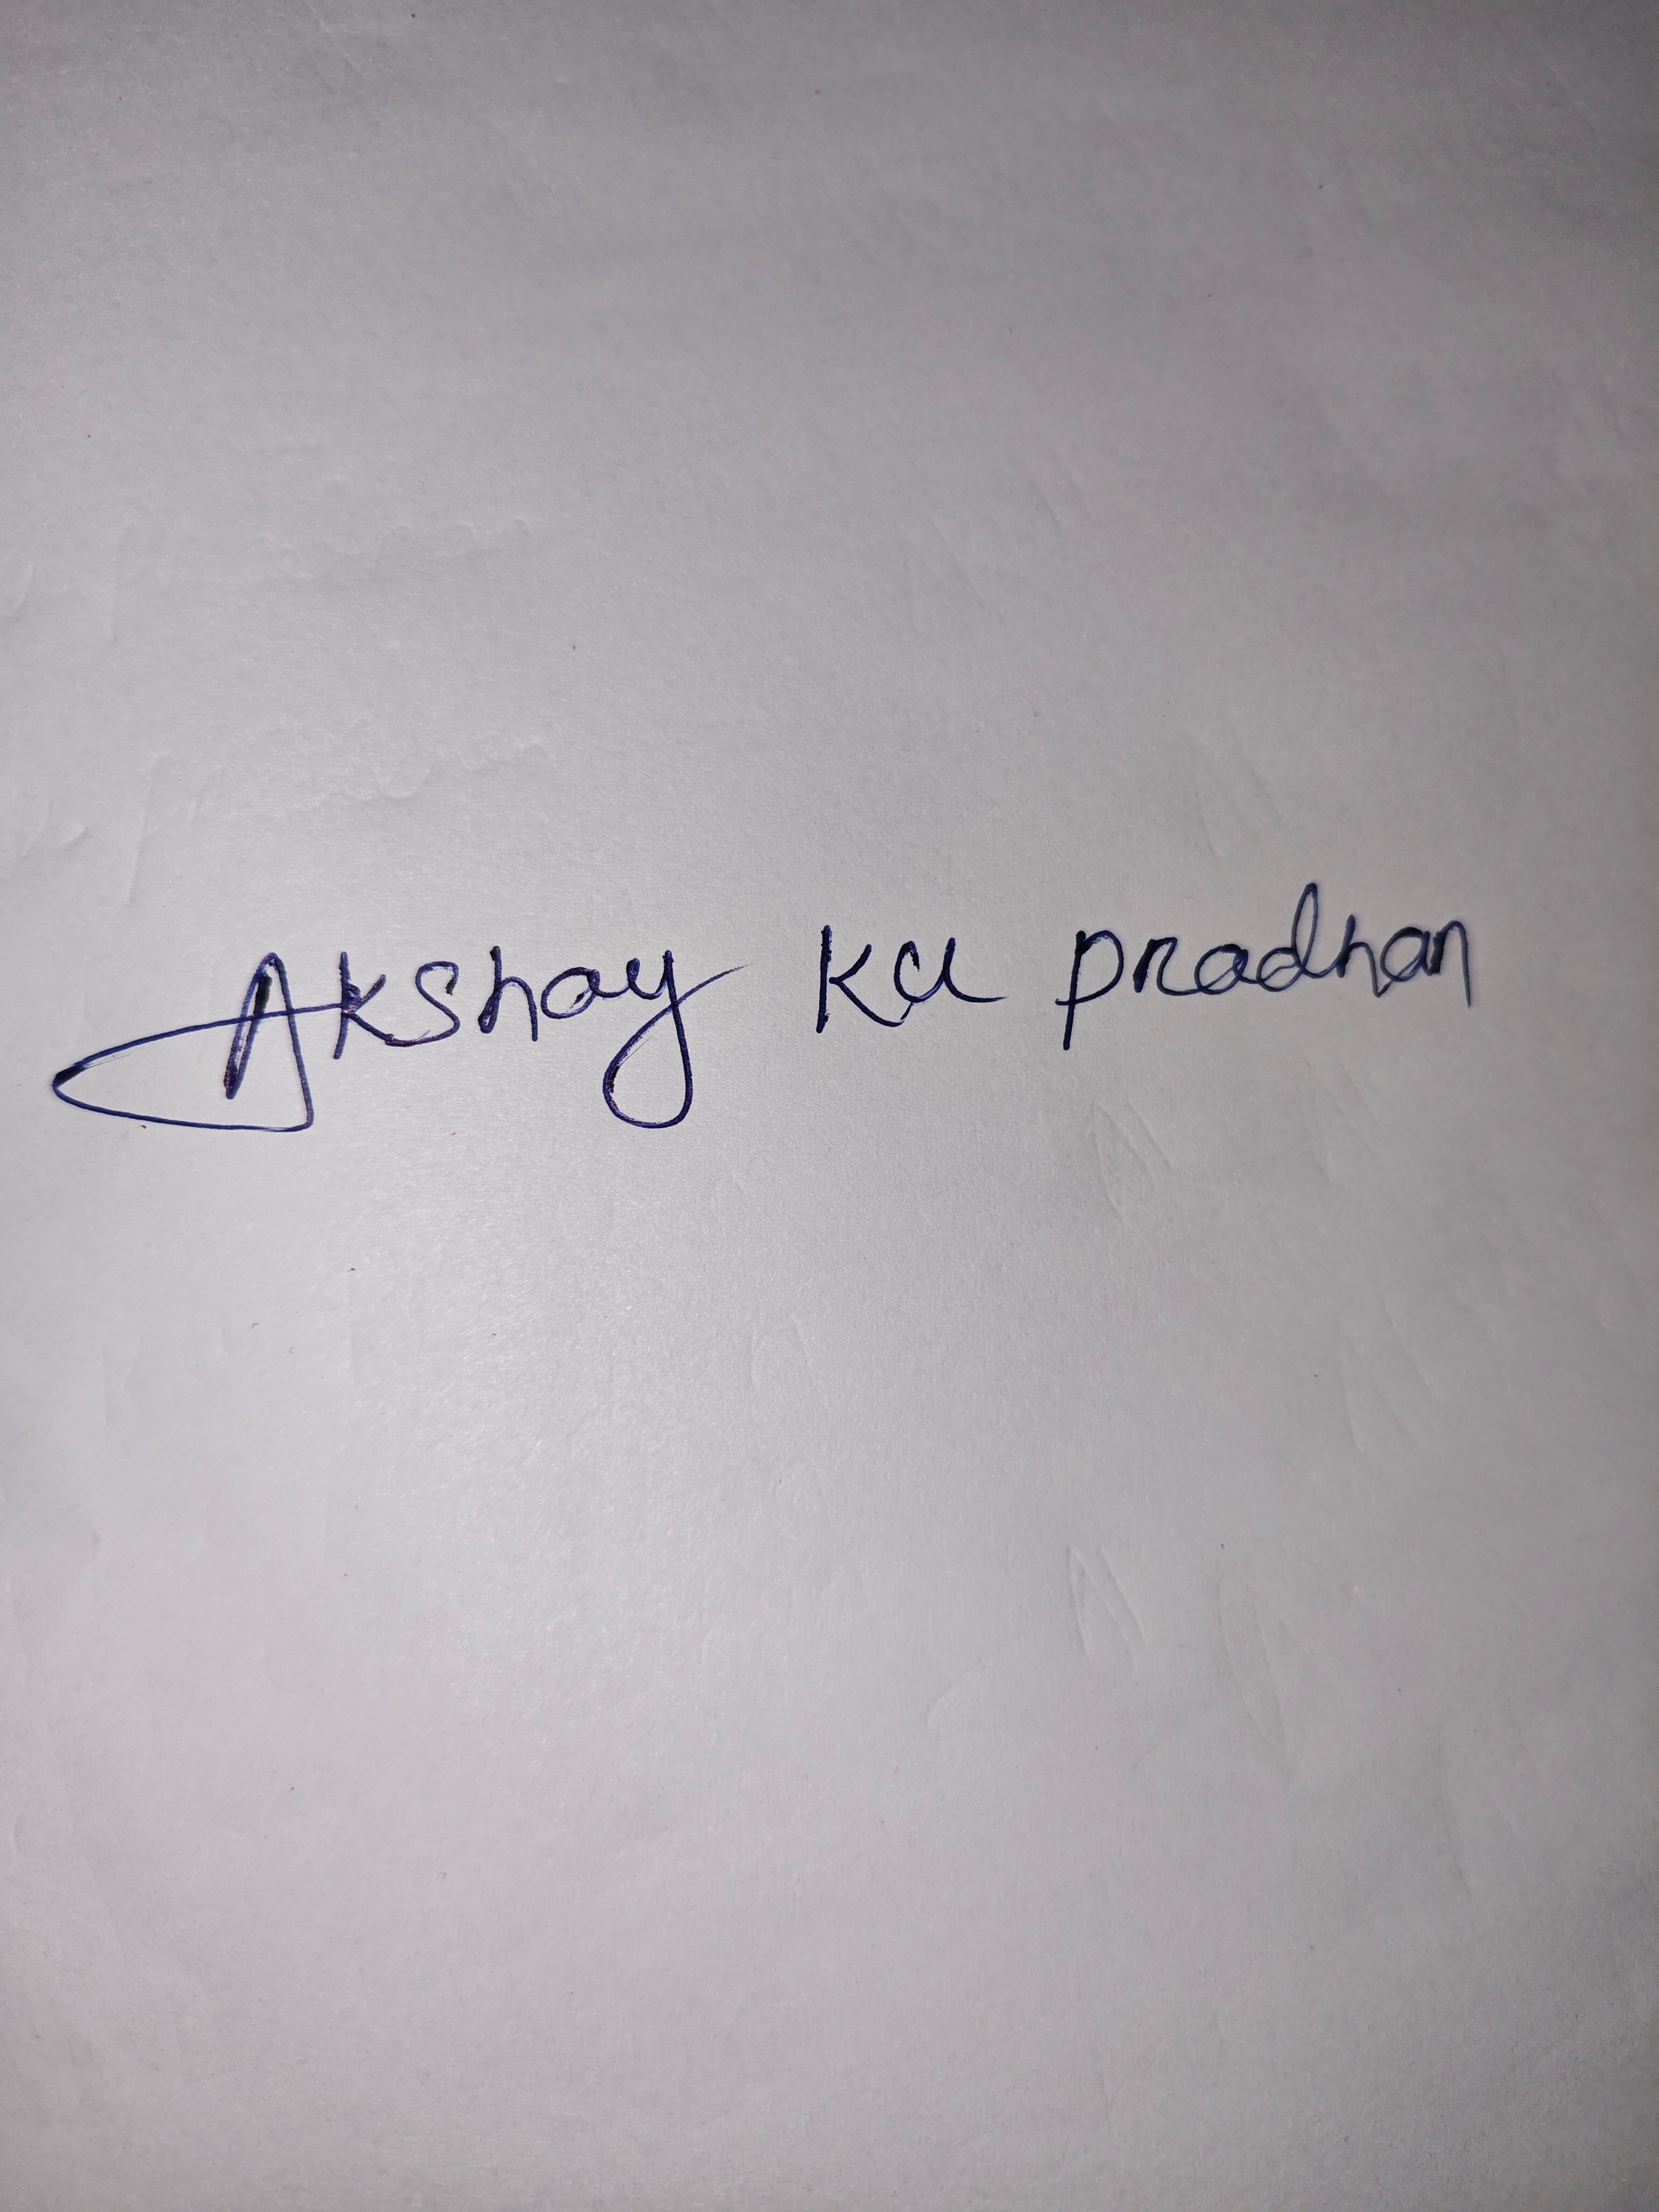 Akshay Ku Pradhan